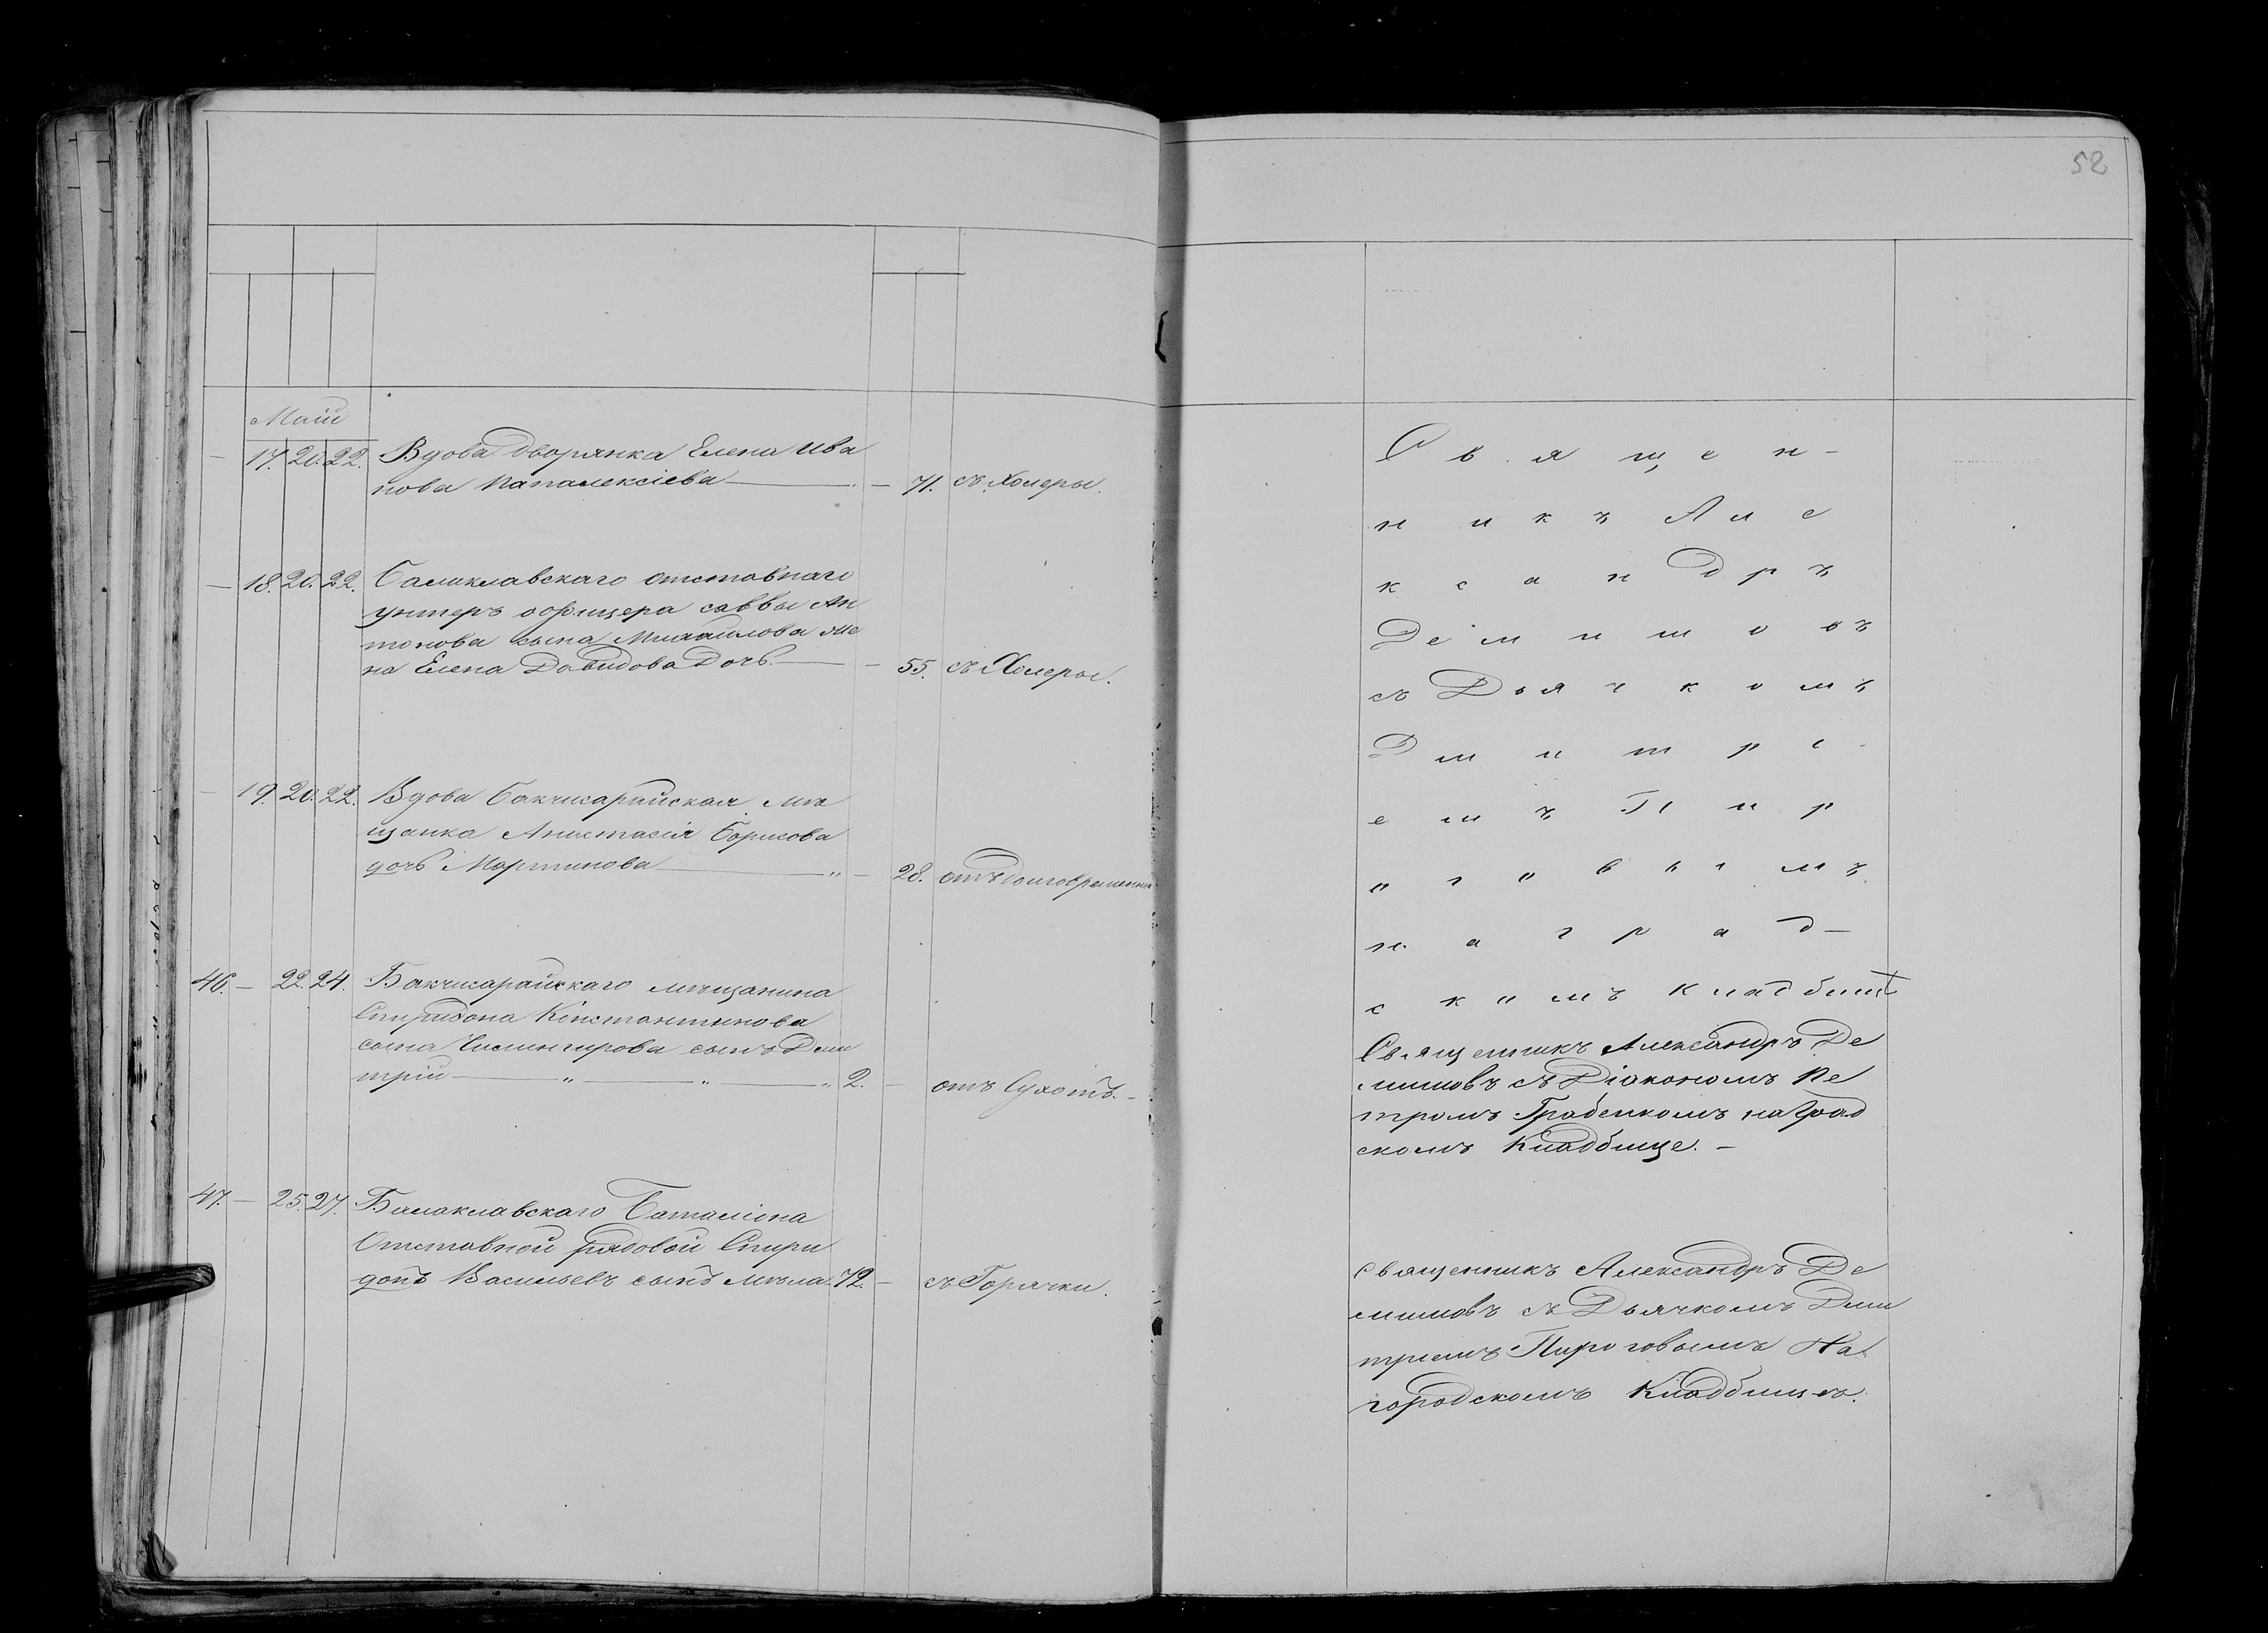 52
Маій
17. 20. 22. Вдова Дворянка Елена Ива
нова Папалексіева — 71. съ Холеры.
18. 20. 22. Балаклавскаго отставнаго
унтеръ офицера Саввы Ан
тонова сына Михайлова же
на Елена Давидова Дочь. — 55. съ Холеры.
19. 20. 22. Вдова Бакчисарайская мѣ
щанка Анастасія Борисова
дочь Мартинова — 28. отъ долговременн
46. — 22. 24. Бакчисарайскаго мѣщанина
Спиридона Константинова
сына Чилингирова сынъ Дми
трій — 2. — отъ Сухотъ. —
47. — 25. 27. Балаклавскаго Баталіона
Отставной рядовой Спири
донъ Васильевъ сынъ 72. — съ Горячки.
Священ-
никъ Але
ксандръ
Демишовъ
съ Дьячкомъ
Дмитрі-
емъ Пир
оговымъ
на град-
скомъ Кладбищѣ
Священникъ Александръ Де
мишовъ съ Діакономъ Пе
тромъ на Град
скомъ Кладбище. —
Священникъ Александръ Де
мишовъ съ Дьячкомъ Дми
тріемъ Пироговымъ На
городскомъ Кладбищѣ.